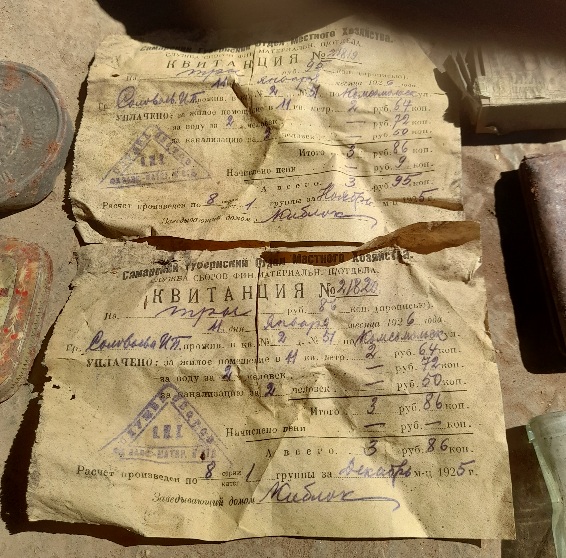 Самарский Губернский Отдел Местного Хозяйства.
СЛУЖБА СБОРОВ ФИН. МАТЕРИАЛЬН. П/ОТДЕЛА.
КВИТАНЦИЯ №21819
На три руб. 95 коп. (прописью).
11 дня января месяца 1926 года.
Гр. Соловьёв И.П. прожив. в кв. № 2 д. № 51 по Комсомольск ул.
УПЛАЧЕНО: за жилое помещение в 11 кв. метр. 2 руб. 64 коп.
за воду за 2 человек — руб. 72 коп.
за канализацию за 2 человек — руб. 50 коп.
Итого 3 руб. 86 коп.
Начислено пени — руб. 9 коп.
А всего 3 руб. 95 коп.
Расчёт произведен по 8 1 группы за Ноябрь м-ц 1925 г.
Заведывающий домом Жиблок
Самарский Губернский Отдел Местного Хозяйства.
СЛУЖБА СБОРОВ ФИН. МАТЕРИАЛЬН. П/ОТДЕЛА.
КВИТАНЦИЯ №21820
На три руб. 86 коп. (прописью).
11 дня января месяца 1926 года.
Гр. Соловьёв И.П. прожив. в кв. № 2 д. № 51 по Комсомольск ул.
УПЛАЧЕНО: за жилое помещение в 11 кв. метр. 2 руб. 64 коп.
за воду за 2 человек — руб. 72 коп.
за канализацию за 2 человек — руб. 50 коп.
Итого 3 руб. 86 коп.
Начислено пени — руб. — коп.
А всего 3 руб. 86 коп.
СЛУЖБА СБОРОВ
Расчёт произведен по 8 серии катег. 1 группы за Декабрь м-ц 1925 г.
Заведывающий домом Жиблок